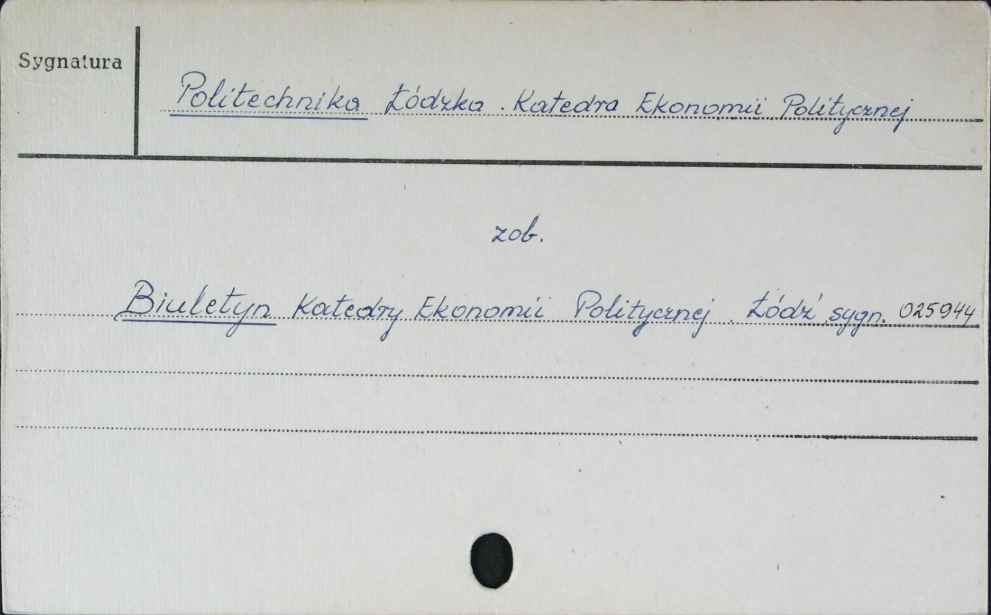 Sygnatura
Politechnika Łódzka. Katedra Ekonomii Politycznej
zob.
Biuletyn Katedry Ekonomii Politycznej. Łódź sygn. 025944